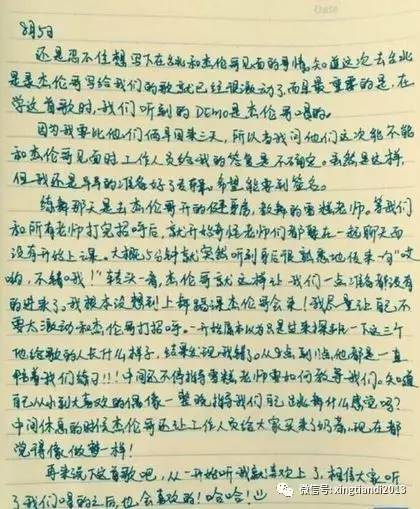 8月5日
还是忍不住想写下在台北和杰伦哥见面的事情,知道这次去台北
是录杰伦哥写给我们的歌就已经很激动了,而且最重要的是,在
学这首歌时,我们听到的DEMO是杰伦哥唱的。
因为我要比他们俩早回来三天,所以当我问他们这次能不能
和杰伦哥见面时工作人员给我的答复是不确定。虽然是这样,
但我还是早早的准备好了专辑,希望能要到签名。
练舞那天是去杰伦哥开的健身房,教舞的雪糕老师。等我们
和所有老师打完招呼后,就开始奇怪老师们都聚在一起聊天而
没有开始上课。大概15分钟就突然听到背后很熟悉地传来一句"哎
哟,不错哦!"转头一看,杰伦哥就这样让我们一点准备都没有
的进来了。我根本没想到上舞蹈课杰伦哥会来!我尽量让自己不
要太激动和杰伦哥打招呼。一开始原本以为只是过来探班一下这三个
他给歌的人长什么样子,结果发现我错了。从9点到11点,他都是一直
陪着我们练习!!!中间还不停指导雪糕老师要如何教导我们。知道
自己从小到大喜欢的偶像一整晚指导我们自己跳舞什么感觉吗?
中间休息的时候杰伦哥还让工作人员给大家买来奶茶,现在都
觉得像做梦一样!
再来说下这首歌吧,从一开始听我就喜欢上了,相信大家听
了我们唱的之后,也会喜欢的!哈哈!
微信号: xingtiandi2013